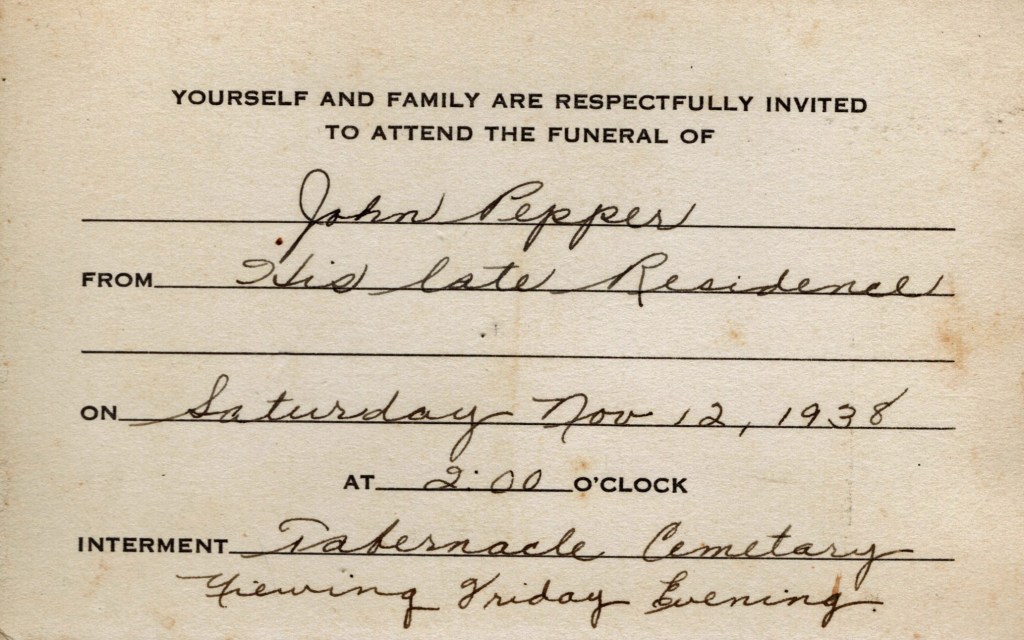 YOURSELF AND FAMILY ARE RESPECTFULLY INVITED
TO ATTEND THE FUNERAL OF
John Pepper
FROM His late Residence
ON Saturday Nov 12, 1938
AT 2:00 O'CLOCK
INTERMENT Tabernacle Cemetary
Viewing Friday Evening.